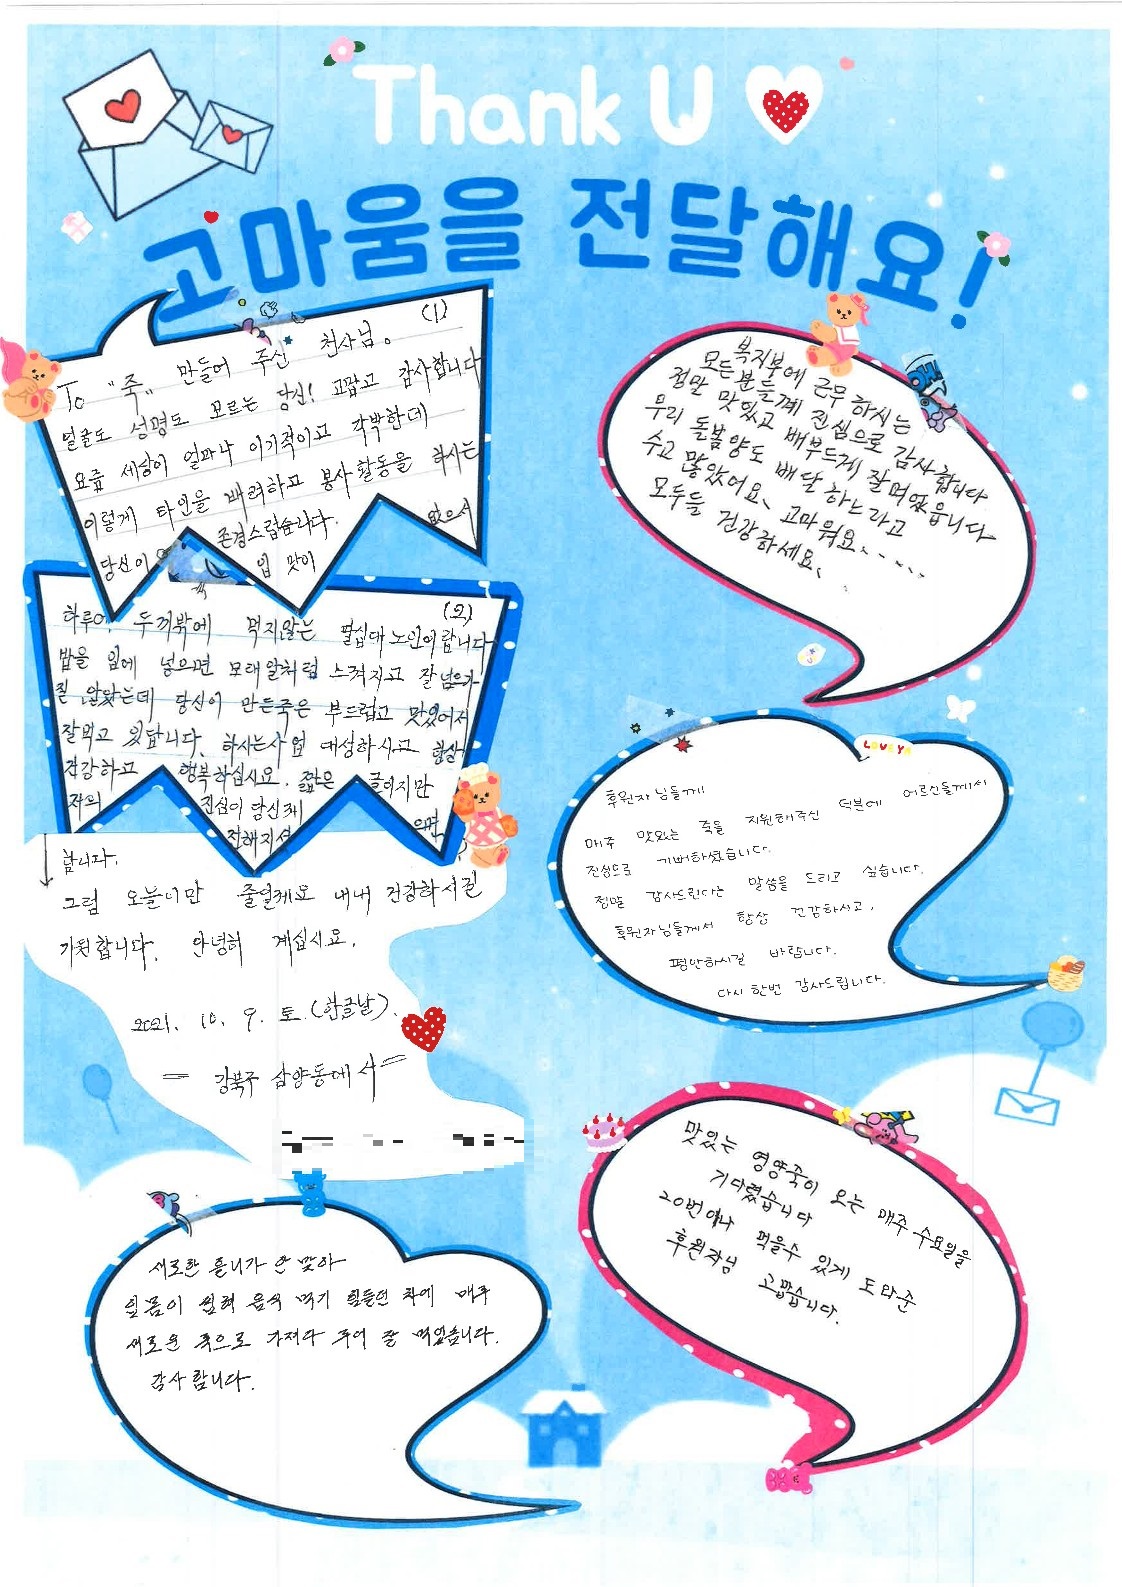 Thank U
고마움을 전달해요!
(1)
To "죽" 만들어 주신 천사님.
얼굴도 성명도 모르는 당신! 고맙고 감사합니다
요즘 세상이 얼마나 이기적이고 각박한데
이렇게 타인을 배려하고 봉사활동을 하시는
당신이 존경스럽습니다.
입 맛이 없으서
(2)
하루에 두끼밖에 먹지않는 팔십대노인이랍니다
밥을 입에 넣으면 모래알처럼 스겨지고 잘넘어가
질 않았는데 당신이 만든죽은 부드럽고 맛있어서
잘먹고 있답니다. 하시는사업 대성하시고 항상
건강하고 행복하십시요. 짧은 글이지만
저의 진심이 당신께
전해지셨으면
합니다.
그럼 오늘이만 줄일께요 내내 건강하시길
기원합니다. 안녕히 계십시요.
2021. 10. 9. 토.(한글날).
= 강북구 삼양동에서 =
복지부에 근무하시는
모든분들께 진심으로 감사합니다
정말 맛있고 배부드게 잘먹었읍니다
우리 돌봄양도 배달하느라고
수고 많았어요. 고마워요.....
모두들 건강하세요.
LOVE YA
후원자님들께!
매주 맛있는 죽을 지원해주신 덕분에 어르신들께서
진심으로 기뻐하셨습니다.
정말 감사드린다는 말씀을 드리고 싶습니다.
후원자님들께서 항상 건강하시고,
평안하시길 바랍니다.
다시 한번 감사드립니다.
새로한 틀니가 안 맞아
잇몸이 씹혀 음식 먹기 힘들던 차에 매주
새로운 죽으로 가져다 주어 잘 먹었습니다.
감사합니다.
맛있는 영양죽이 오는 매주 수요일을
기다렸습니다
20번이나 먹을수 있게 도와준
후원자님 고맙습니다.